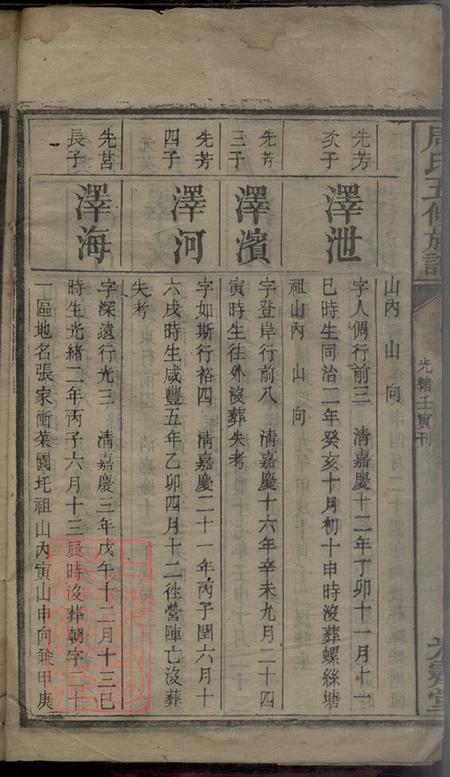 周氏五修族譜
光緒壬寅刊
山內 山 向
先芳
次子
澤泄
字人倜行前三 清嘉慶十二年丁卯十一月十一
巳時生同治二年癸亥十月初十申時沒葬螺絲塘
祖山內 山 向
先芳
三子
澤濱
字登岸行前八 清嘉慶十六年辛未九月二十四
寅時生往外沒葬失考
先芳
四子
澤河
字如斯行裕四 清嘉慶二十一年丙子閏六月十
六戌時生咸豐五年乙卯四月十二往營陣亡沒葬
失考
先莒
長子
澤海
字深遠行光三 清嘉慶三年戊午十二月十三巳
時生光緒二年丙子六月十三辰時沒葬朝字二十
一區地名張家衝菜園圫祖山內寅山申向兼甲庚